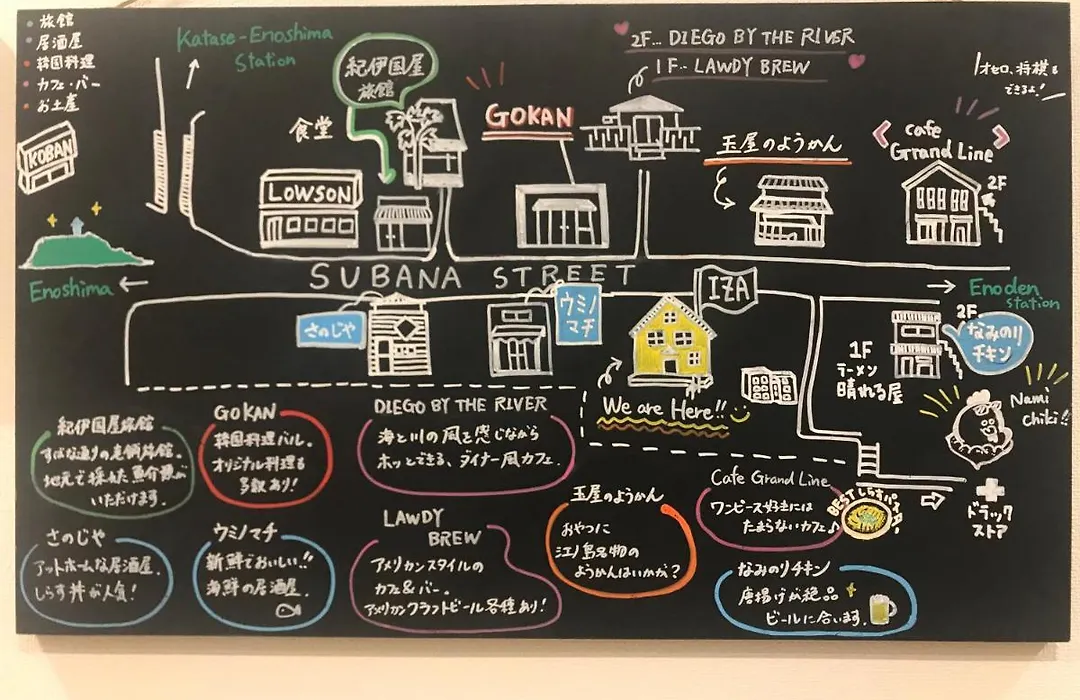 旅館
居酒屋
韓国料理
カフェ・バー
お土産
KOBAN
Katase-Enoshima
Station
紀伊国屋
旅館
食堂
LOWSON
GOKAN
2F... DIEGO BY THE RIVER
1F.. LAWDY BREW
玉屋のようかん
オセロ、将棋も
できるよ!
cafe
Grand Line
2F
SUBANA STREET
Enoshima
Enoden
station
さのじや
ウミノ
マチ
IZA
2F
なみのり
チキン
1F
ラーメン
晴れる屋
We are Here!!
Nami
chiki!!
紀伊国屋旅館
すばな通りの老舗旅館。
地元で採れた魚介類が
いただけます。
GOKAN
韓国料理バル。
オリジナル料理も
多数あり!
DIEGO BY THE RIVER
海と川の風を感じながら
ホッとできる、ダイナー風カフェ。
玉屋のようかん
おやつに
江ノ島名物の
ようかんはいかが?
Cafe Grand Line
ワンピース好きには
たまらないカフェ♪
BESTしらすパスタ!
ドラック
ストア
さのじや
アットホームな居酒屋。
しらす丼が人気!
ウミノマチ
新鮮でおいしい!!
海鮮の居酒屋。
LAWDY
BREW
アメリカンスタイルの
カフェ&バー。
アメリカンクラフトビール各種あり!
なみのりチキン
唐揚げが絶品
ビールに合います。